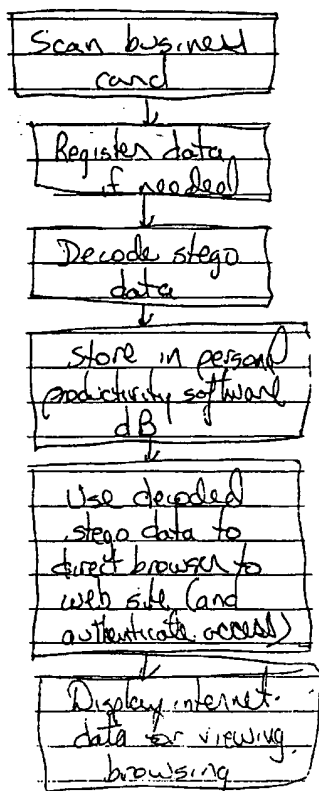 Scan business
card
Register data
if needed
Decode stego
data
Store in personal
productivity software
dB
Use decoded
stego data to
direct browser to
web site (and
authenticate access)
Display internet
data for viewing
browsing